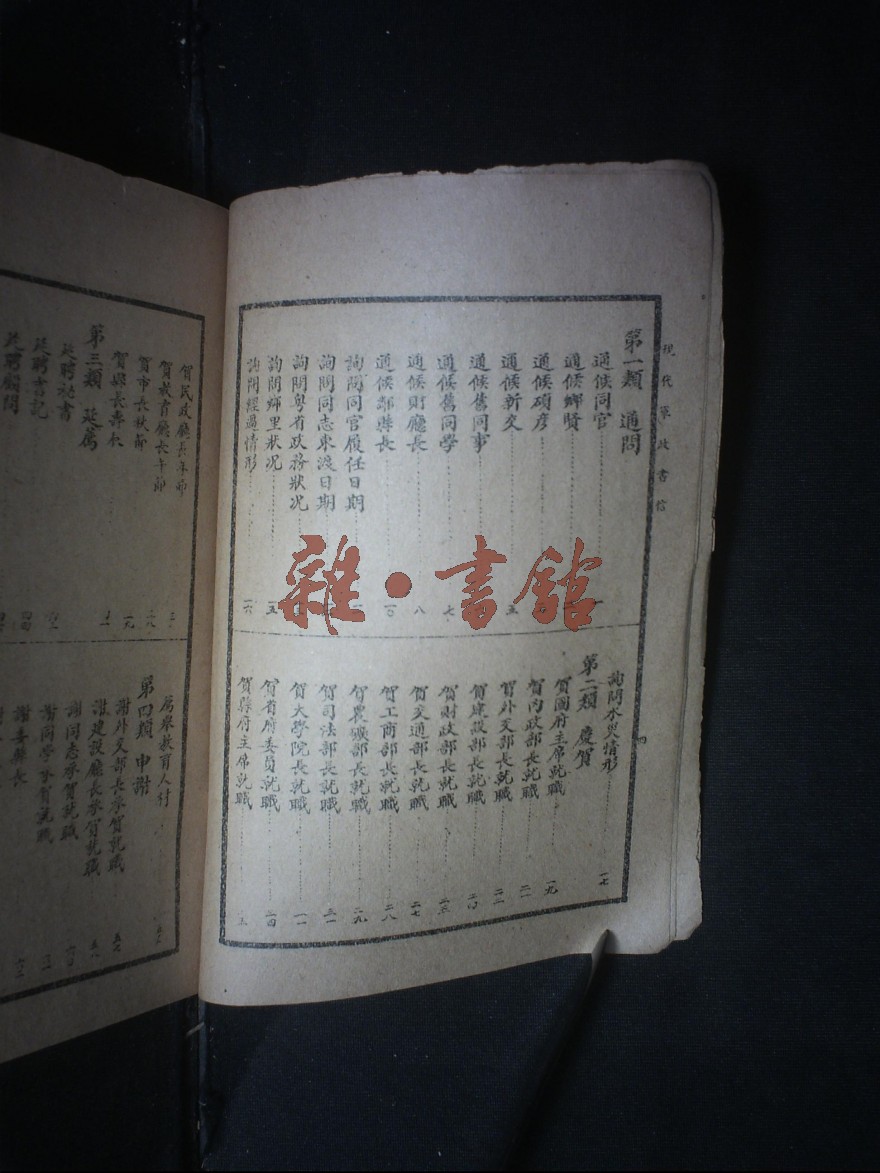 現代軍政書信
第一類 通問
通候同官
通候鄉賢
通候碩彥
通候新交 五
通候舊同事
通候舊同學 七
通候財廳長 八
通候鄰縣長
詢問同官履任日期
詢問同志東渡日期
詢問粵省政務狀况
詢問鄉里狀况
詢問經過情形
詢問水災情形 一七
第二類 慶賀
賀國府主席就職 一九
賀內政部長就職
賀外交部長就職
賀建設部長就職
賀財政部長就職
賀交通部長就職 二七
賀工商部長就職 二八
賀農礦部長就職 二九
賀司法部長就職
賀大學院長就職
賀省府委員就職
賀縣府主席就職
雜·書館
賀民政廳長年節
賀教育廳長午節
賀市長秋節
賀縣長壽
第三類 延薦
延聘祕書
延聘書記
延聘顧問
薦舉教育人材
第四類 申謝
謝外交部長承賀就職
謝建設廳長承賀就職
謝同志承賀就職
謝同學承賀就職
謝委縣長